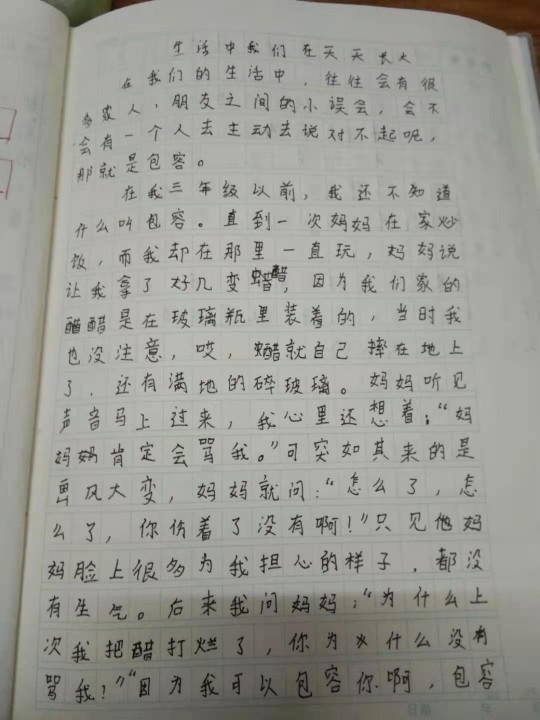 生活中我们在天天长大
在我们的生活中，往往会有很
多家人，朋友之间的小误会，会不
会有一个人去主动去说对不起呢，
那就是包容。
在我三年级以前，我还不知道
什么叫包容。直到一次妈妈在家炒
饭，而我却在那里一直玩，妈妈说
让我拿了好几变醋，因为我们家的
醋是在玻璃瓶里装着的，当时我
也没注意，哎，醋就自己摔在地上
了，还有满地的碎玻璃。妈妈听见
声音马上过来，我心里还想着：“妈
妈妈肯定会骂我。”可突如其来的是
画风大变，妈妈就问：“怎么了，怎
么了，你伤着了没有啊！”只见他妈
妈脸上很多为我担心的样子，都没
有生气。后来我问妈妈：“为什么上
次我把醋打烂了，你为什么没有
骂我？”“因为我可以包容你啊，包容
日期 年